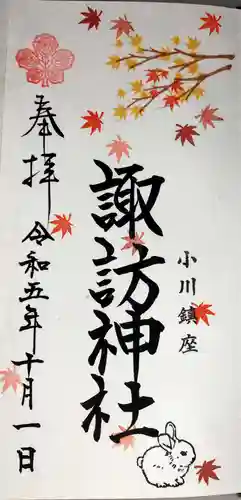 小川鎮座
諏訪神社
奉拝
令和五年十月一日